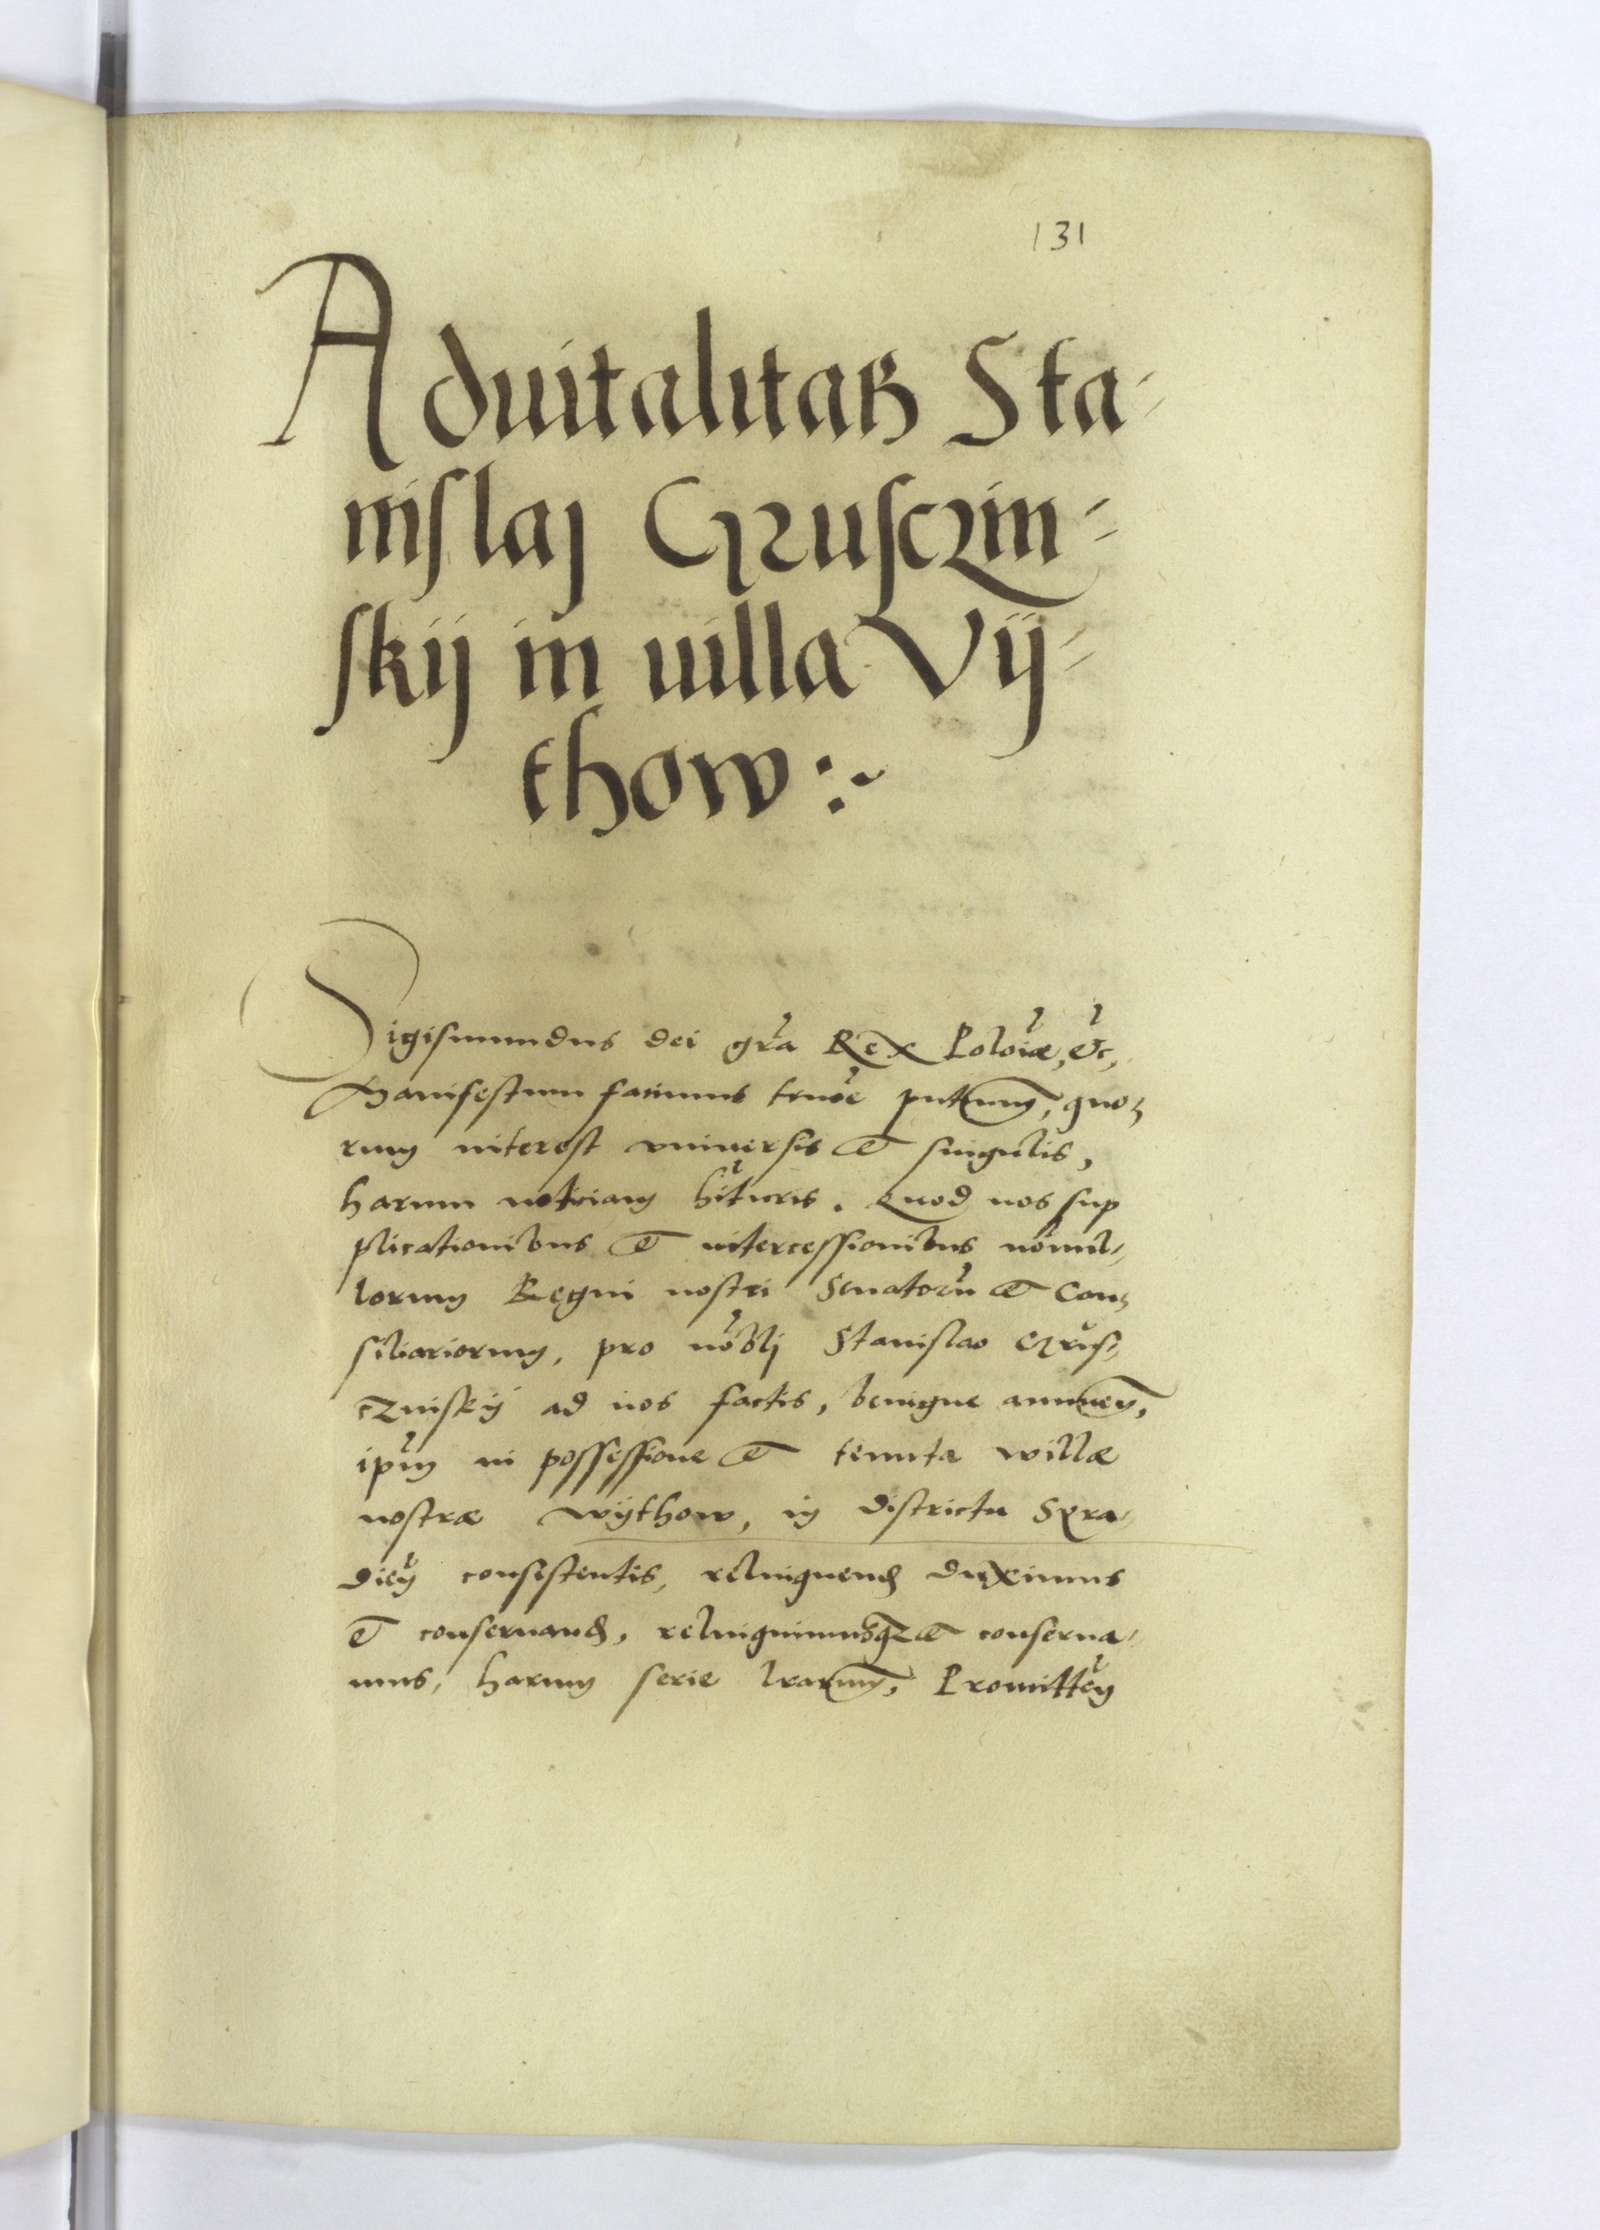 131
Aduitalitas Sta-
nislaj Gruscзin-
skij in uilla Vij-
thow:~
Sigismundus dei gra Rex Poloiæ, &c,
Manifestum facimus tenore pntium, quo-
rum interest vniuersis et singulis,
harum noticiam hituris. Quod nos sup
plicationibus et intercessionibus nonnul-
lorum Regni nostri Senatoru et Con-
siliariorum, pro nobli Stanislao Grus-
czniskÿ ad nos factis, benigne annuen,
ipm in possessione et tenuta willæ
nostræ Wÿthow, in districtu Syra-
dien consistentis, relinquend duximus
et conseruand, relinquimusqz et conserua-
mus, harum serie lrarum, Promitten